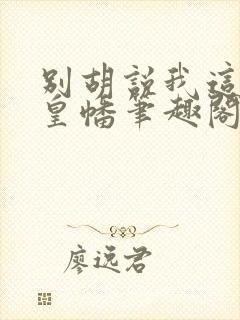 别胡说我这
皇幡笔趣阁
廖远君